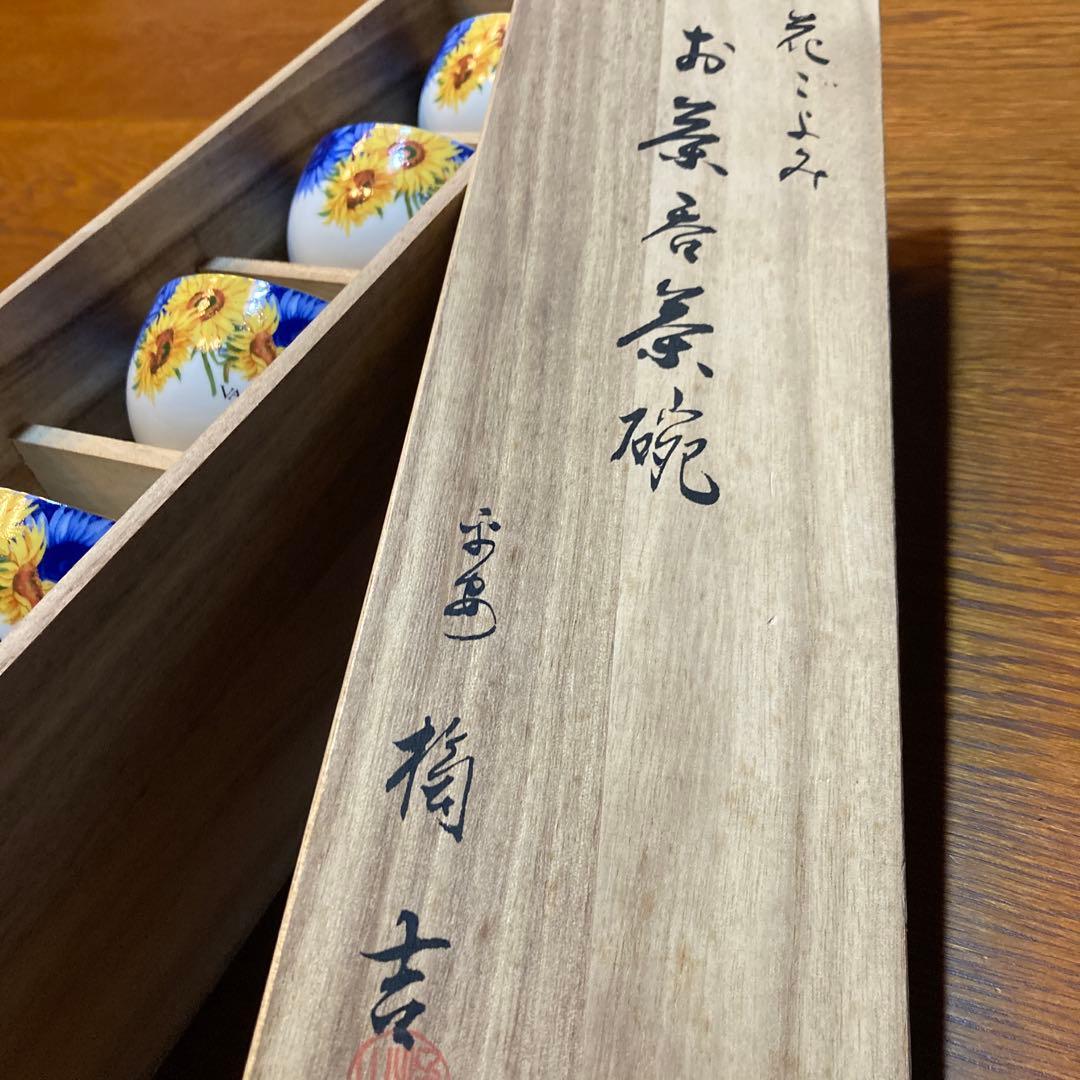 花ごよみ
お茶呑茶碗
平安
橘吉
VA